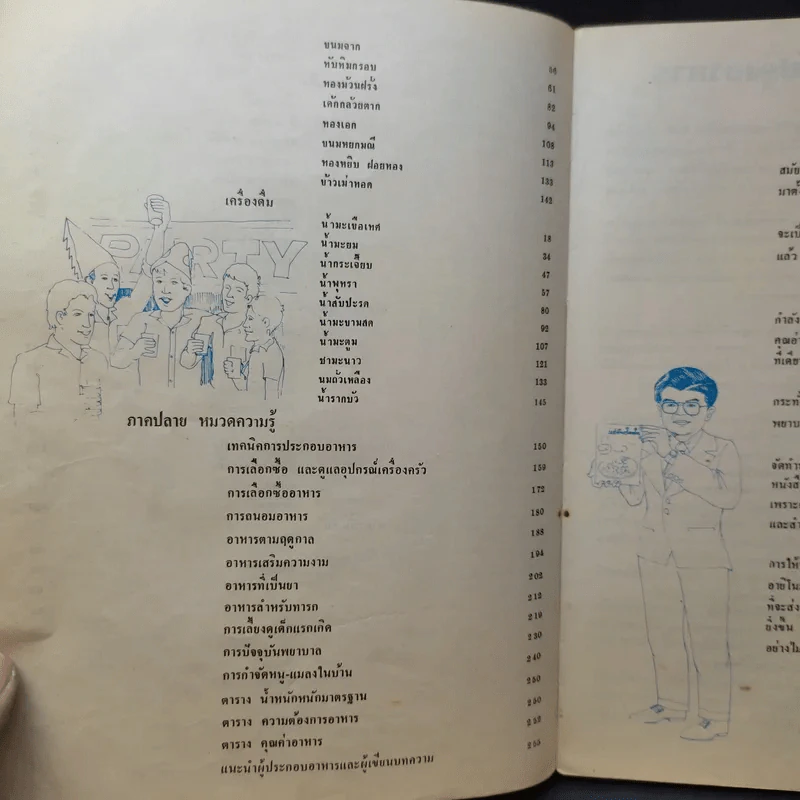 ขนมจาก
ทับทิมกรอบ
ทองม้วนฝรั่ง 61
เค้กกล้วยตาก 82
ทองเอก 94
ขนมหยกมณี 108
ทองหยิบ ฝอยทอง 112
ข้าวเม่าทอด 133
142
เครื่องดื่ม
PARTY
น้ำมะเขือเทศ
น้ำมะยม 18
น้ำกระเจี๊ยบ 34
น้ำพุทรา 47
น้ำสับปะรด 57
น้ำมะขามสด 80
น้ำมะตูม 92
ชามะนาว 107
นมถั่วเหลือง 121
น้ำรากบัว 133
145
ภาคปลาย หมวดความรู้
เทคนิคการประกอบอาหาร 150
การเลือกซื้อ และดูแลอุปกรณ์เครื่องครัว 159
การเลือกซื้ออาหาร 172
การถนอมอาหาร 180
อาหารตามฤดูกาล 188
อาหารเสริมความงาม 194
อาหารที่เป็นยา 202
อาหารสำหรับทารก 212
การเลี้ยงดูเด็กแรกเกิด 219
การปัจจุบันพยาบาล 230
การกำจัดหนู-แมลงในบ้าน 240
ตาราง น้ำหนักหนักมาตรฐาน 250
ตาราง ความต้องการอาหาร 250
ตาราง คุณค่าอาหาร 252
แนะนำผู้ประกอบอาหารและผู้เขียนบทความ 255
สมัย
มาตั้ง
จะเป็
แล้ว
กำลัง
คุณอ่
ที่เคีย
กระทั่
พยาบ
จัดทำ
หนังสื
เพราะ
และสำ
การให้
อายิโน
ที่จะส่ง
ยิ่งขึ้น
อย่างไม่